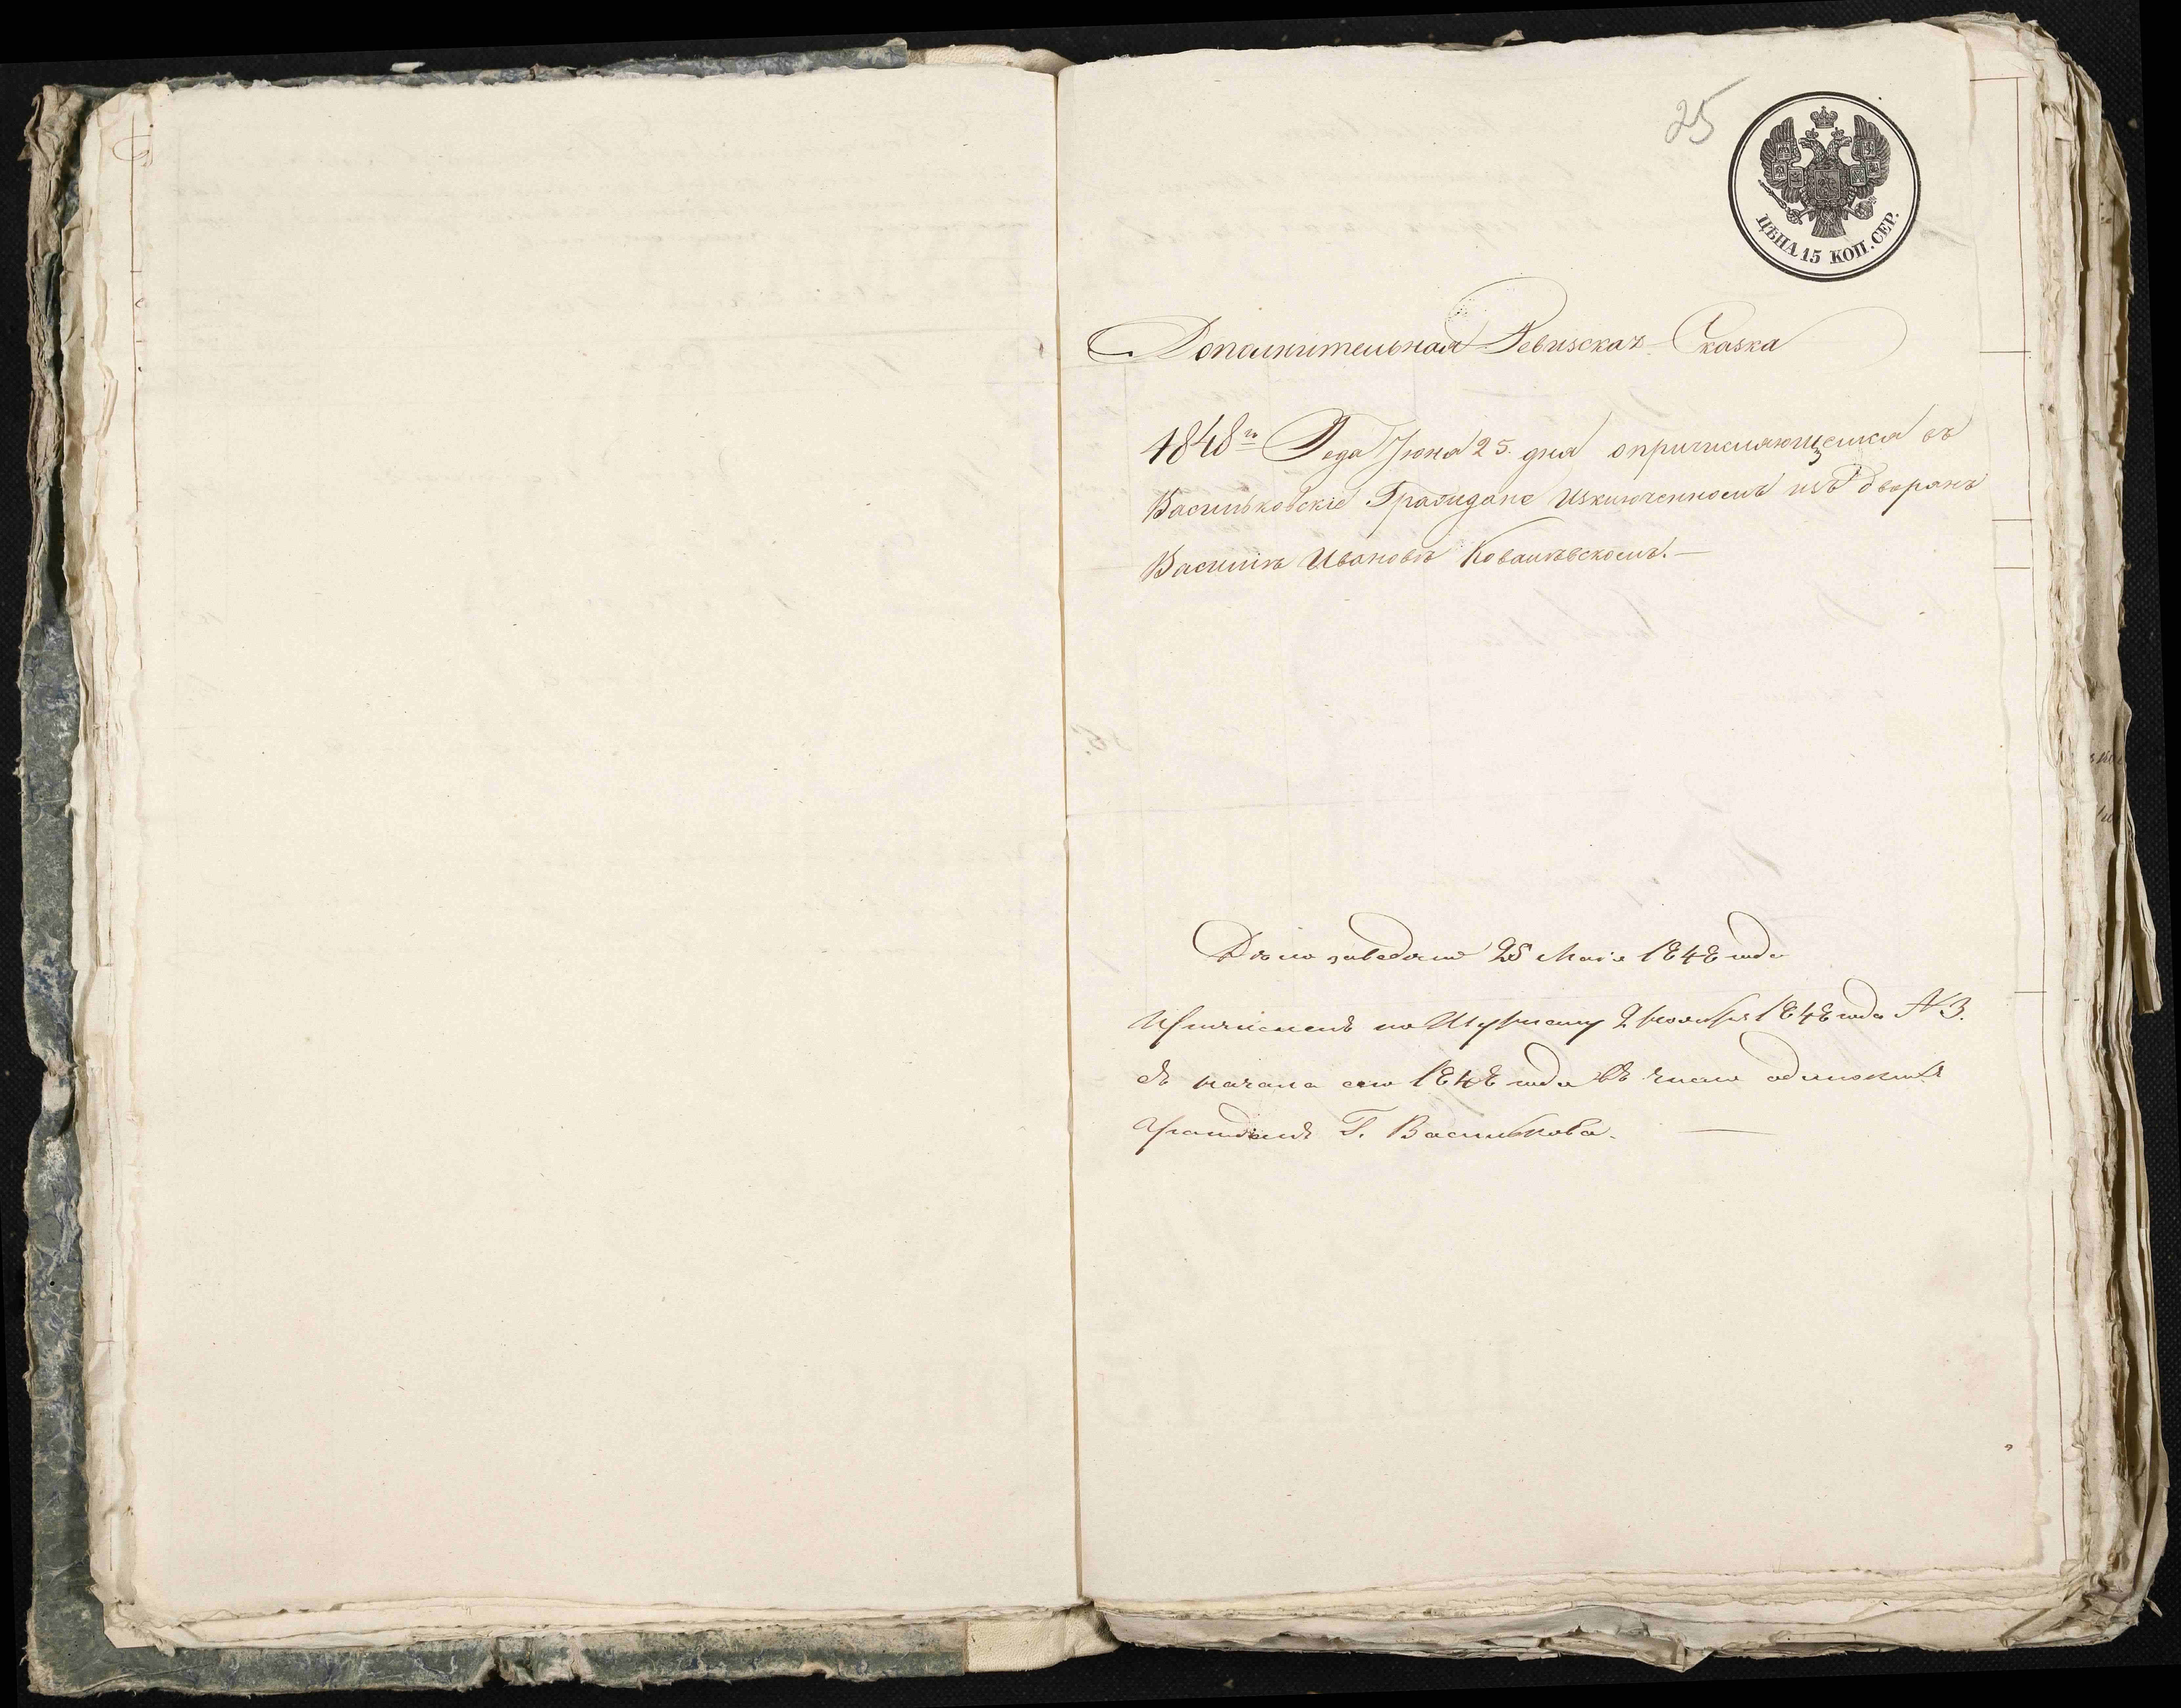 25
ЦѢНА 15 КОП. СЕР.
Дополнительная Ревизская Сказка
1848го Года Іюня 25. дня о причисляющемся въ
Васильковскіе Граждане изключенномъ изъ дворянъ
Василіѣ Ивановѣ Ковалевскомъ. —
Дѣло заведено 25 Маія 1848 года
Причисленъ по Журналу 2 Ноября 1848 года N 3.
съ начала сего 1848 года въ число одинокихъ
гражданъ Г. Василькова. —